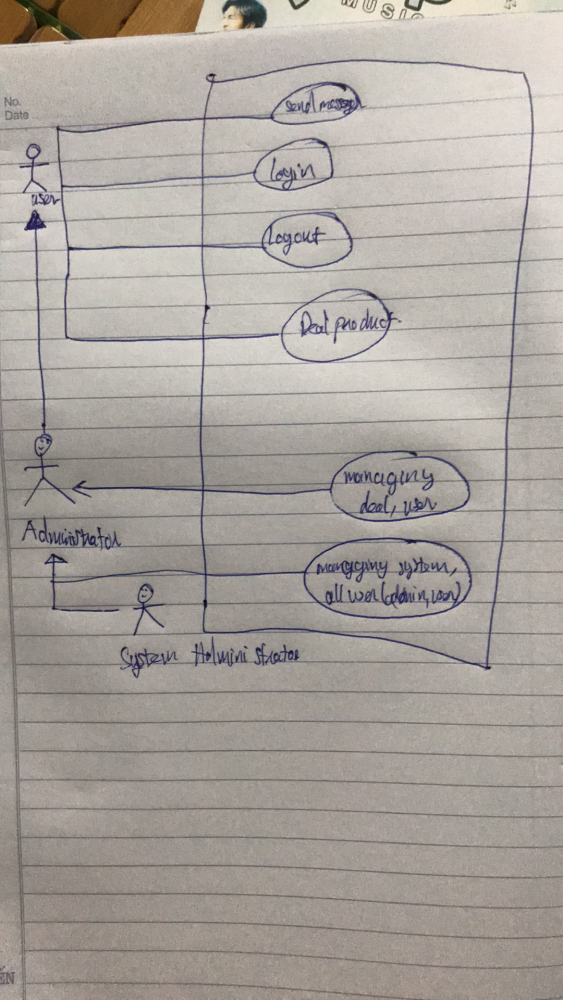 MUSIC
No.
Date
send message
login
user
logout
Deal product
managing
deal, user
Administrator
managging system,
all user (admin, user)
System Adminístrator
ÉN